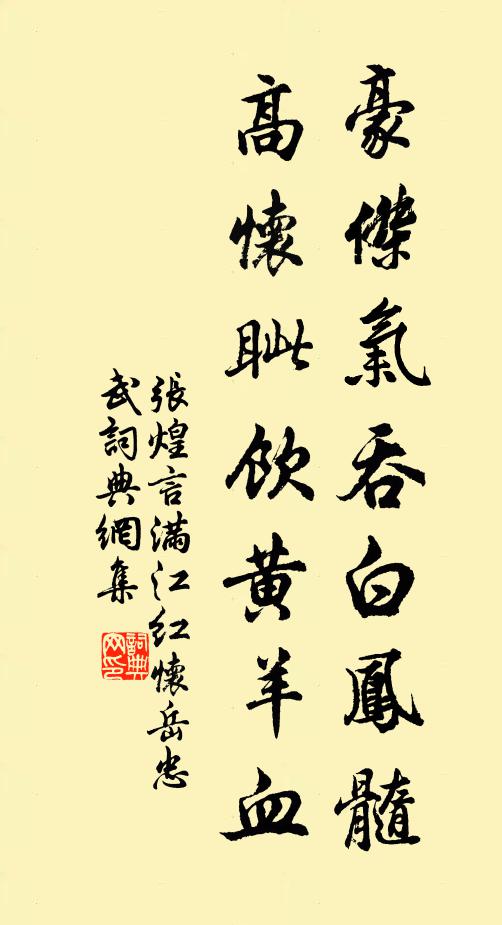 豪傑氣吞白鳳髓
高懷眦飲黃羊血
張煌言滿江紅懷岳忠
武詞典網集
詞典
网印